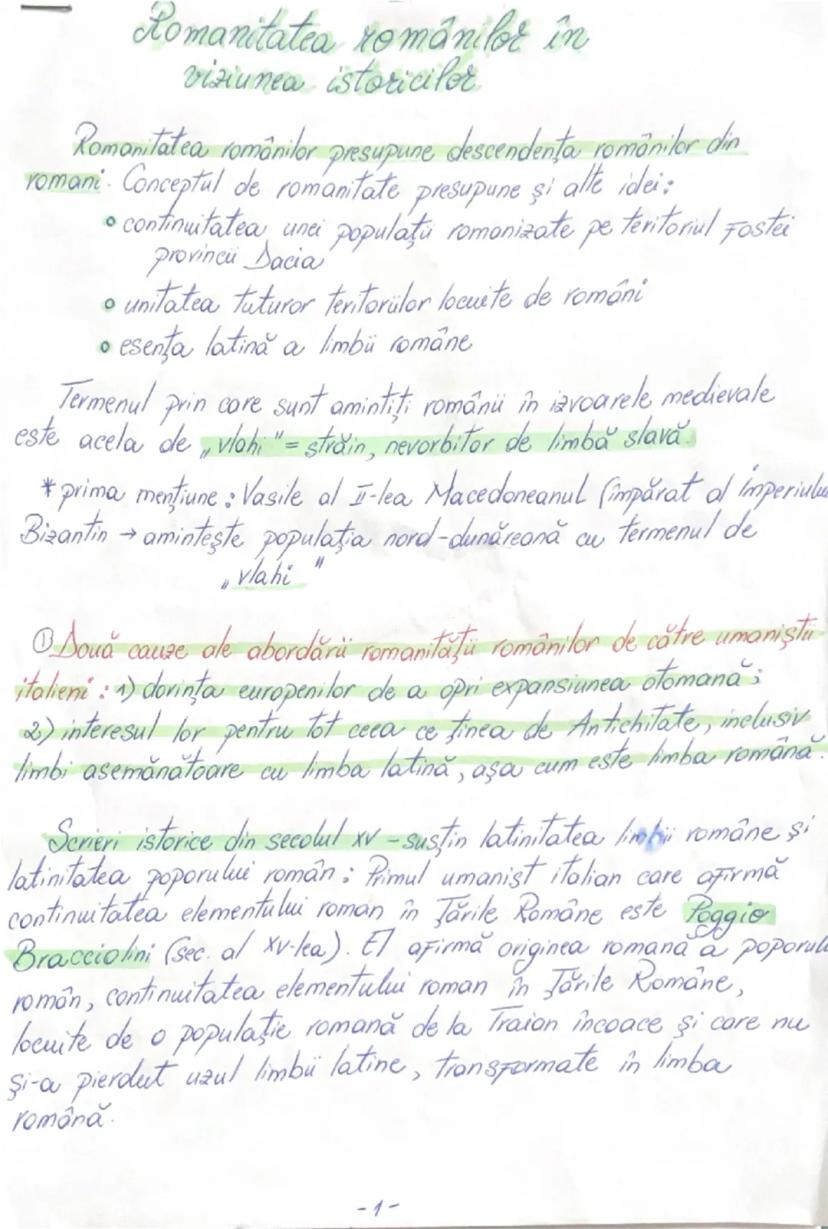 Romanitatea românilor în
viziunea istoricilor
Romanitatea românilor presupune descendența românilor din
romani. Conceptul de romanitate presupune și alte idei:
• continuitatea unei populații romanizate pe teritoriul fostei
provincii Dacia
• unitatea tuturor teritoriilor locuite de români
• esența latină a limbii române
Termenul prin care sunt amintiți românii în izvoarele medievale
este acela de „vlahi" = străin, nevorbitor de limbă slavă.
* prima mențiune: Vasile al II-lea Macedoneanul (împărat al Imperiului
Bizantin → amintește populația nord-dunăreană cu termenul de
„vlahi"
① Două cauze ale abordării romanității românilor de către umaniștii
italieni: 1) dorința europenilor de a opri expansiunea otomană;
2) interesul lor pentru tot ceea ce ținea de Antichitate, inclusiv
limbi asemănătoare cu limba latină, așa cum este limba română.
Scrieri istorice din secolul XV - susțin latinitatea limbii române și
latinitatea poporului român: Primul umanist italian care afirmă
continuitatea elementului roman în Țările Române este Poggio
Bracciolini (sec. al XV-lea). El afirmă originea romană a poporulu
român, continuitatea elementului roman în Țările Române,
locuite de o populație romană de la Traian încoace și care nu
și-a pierdut uzul limbii latine, transformate în limba
română.
-1-